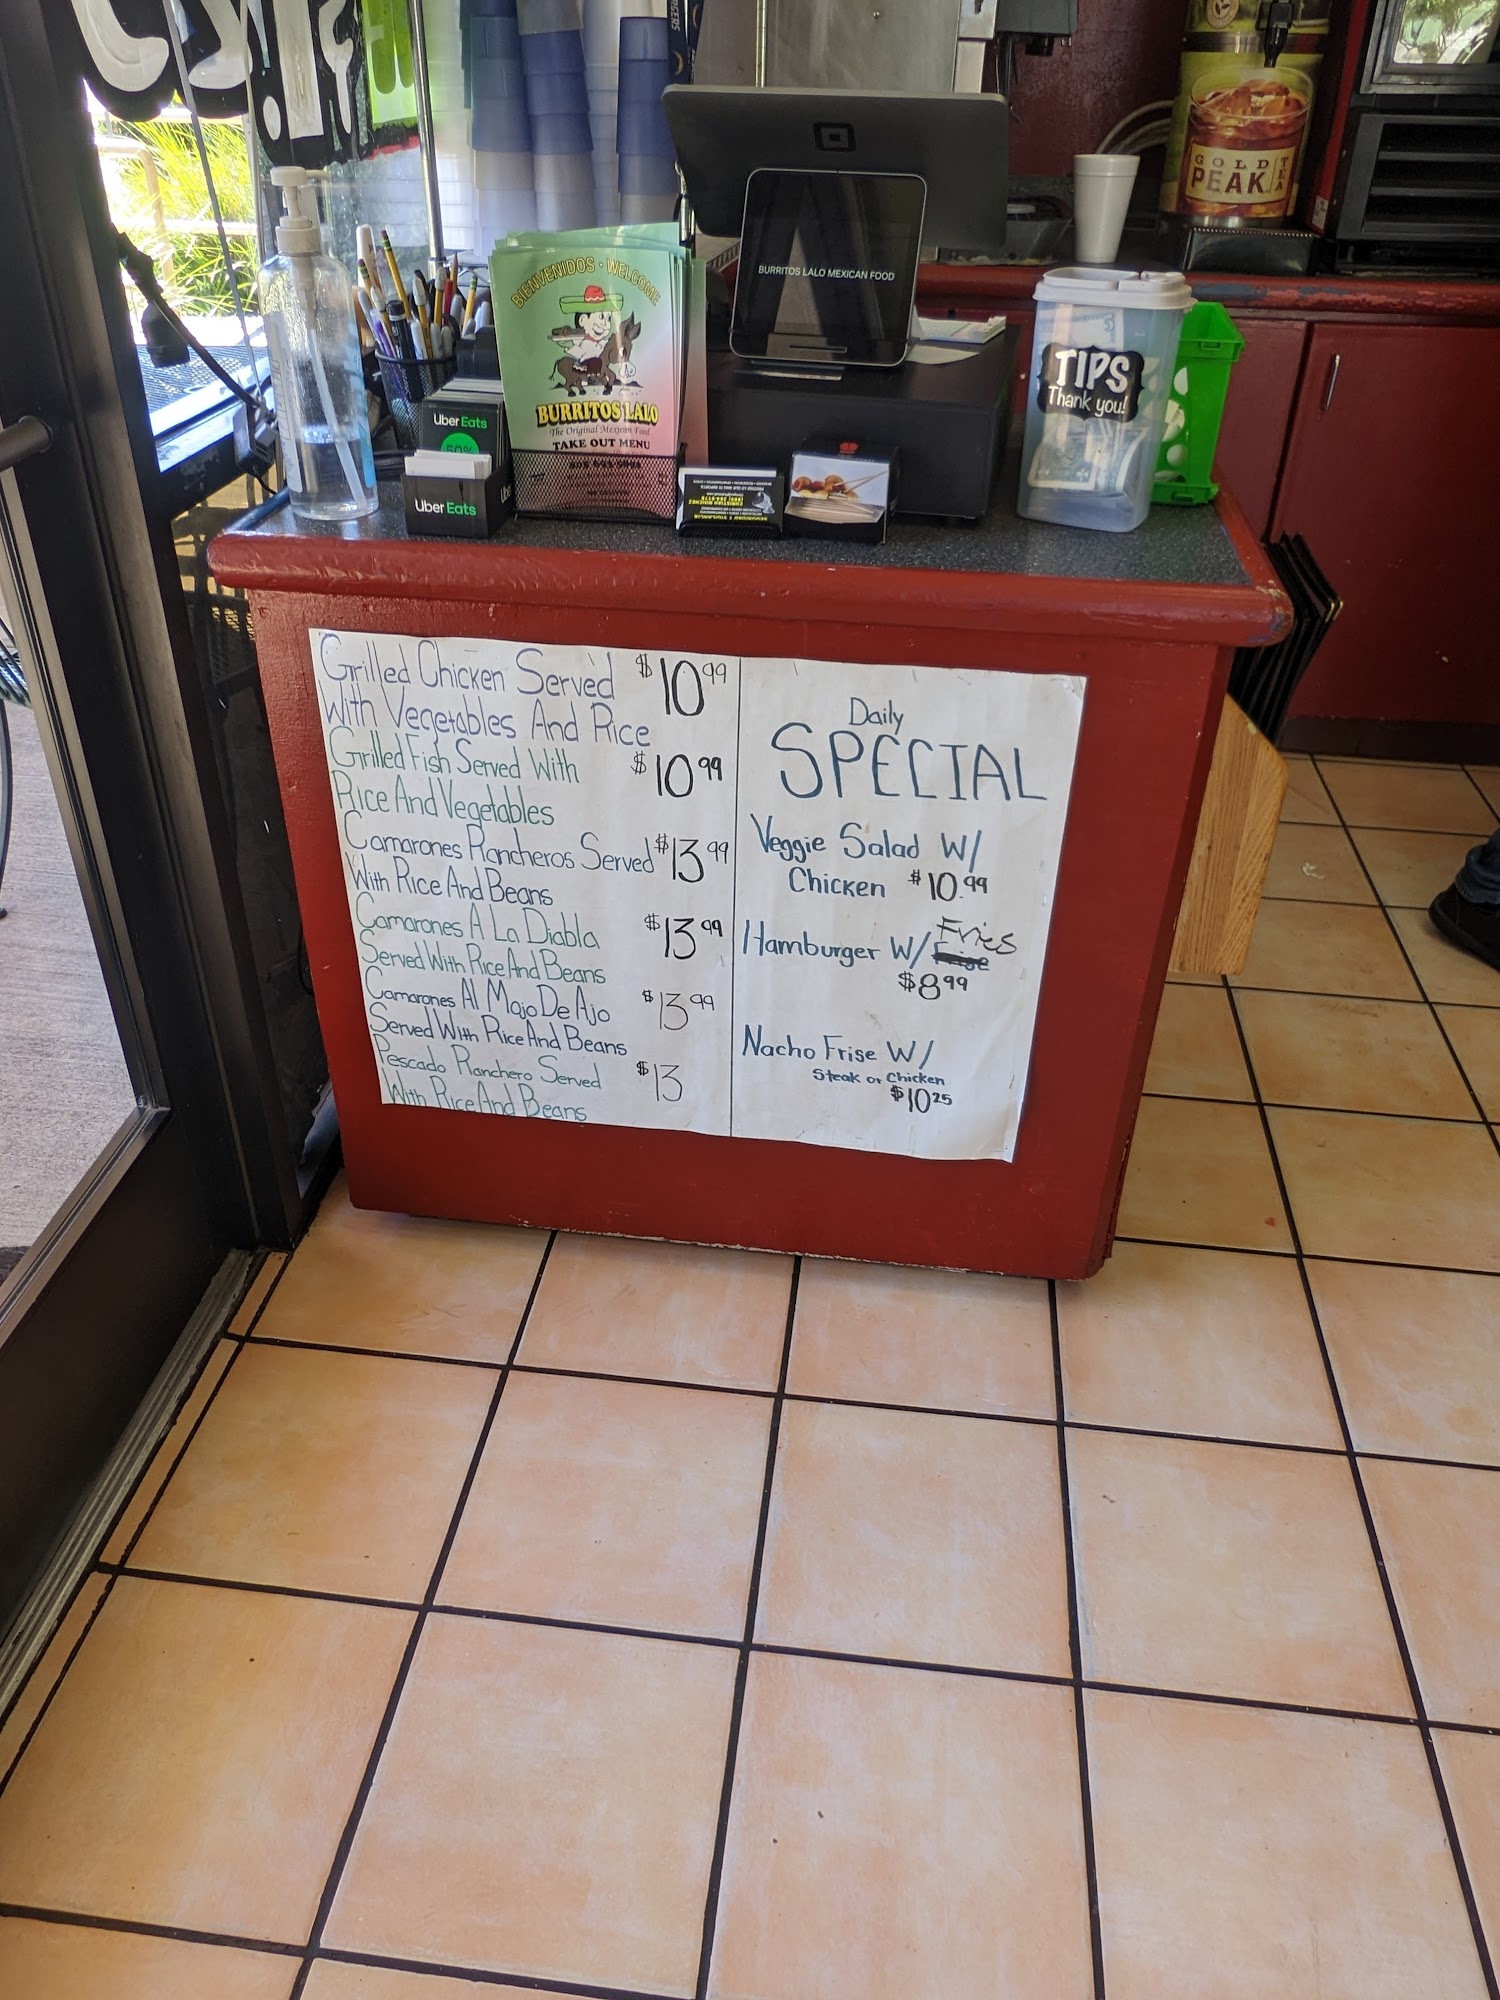 BIENVENIDOS · WELCOME
BURRITOS LALO
The Original Mexican Food
TAKE OUT MENU
Uber Eats
50%
Uber Eats
BURRITOS LALO MEXICAN FOOD
TIPS
Thank you!
GOLD
PEAK
TEA
Grilled Chicken Served $10.99
With Vegetables And Rice
Grilled Fish Served With $10.99
Rice And Vegetables
Camarones Rancheros Served $13.99
With Rice And Beans
Camarones A La Diabla $13.99
Served With Rice And Beans
Camarones Al Mojo De Ajo $13.99
Served With Rice And Beans
Pescado Ranchero Served $13
With Rice And Beans
Daily
SPECIAL
Veggie Salad W/
Chicken $10.99
Hamburger W/ Fries
$8.99
Nacho Frise W/
Steak or Chicken
$10.25